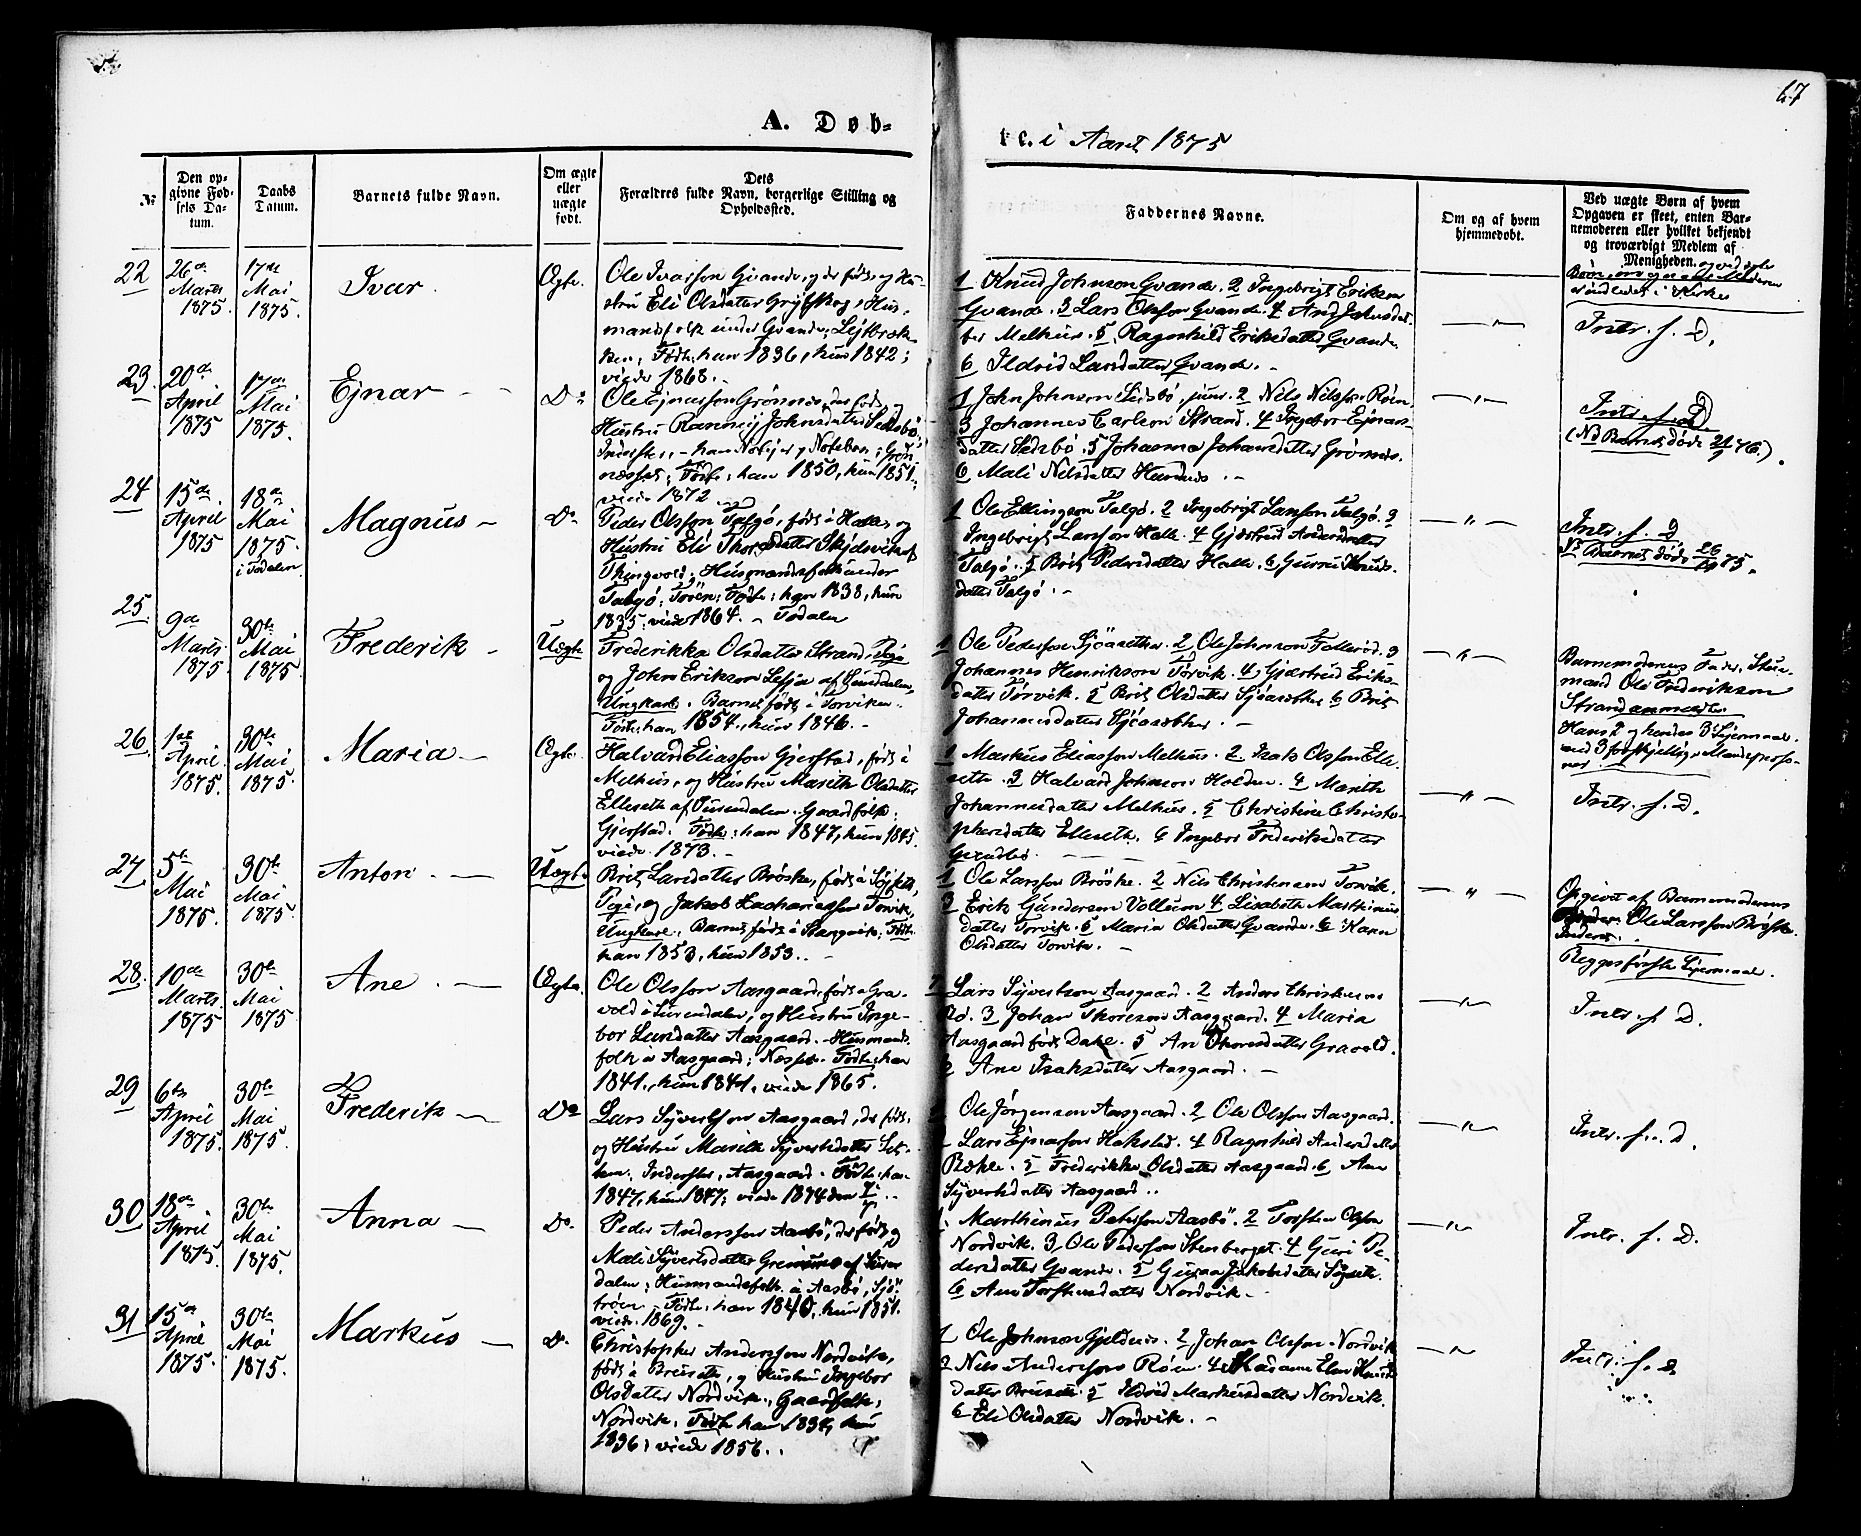 67
A. Døb-
te. i Aaret 1875
No
Den op-
givne Fød-
sels Da-
tum.
Daabs
Datum.
Barnets fulde Navn.
Om ægte
eller
uægte
født.
Dets
Forældres fulde Navn, borgerlige Stilling og
Opholdssted.
Faddernes Navne.
Om og af hvem
hjemmedøbt.
Ved uægte Børn af hvem
Opgaven er skeet, enten Bar-
nemoderen eller hvilket bekjendt
og troværdigt Medlem af
Menigheden.
22
26de
Marts
1875.
17de
Mai
1875.
Ivar.
Ægte.
Ole Ivarsson Gvande, der født og Hu-
stru Eli Olsdatter Grytskog, Hus-
mandsfolk under Gvande;
Födte: han 1836, hun 1842;
viede 1868.
1 Knud Johnson Gvande. 2 Ingebrigt Erikson
Gvande. 3 Lars Olsson Gvande. 4
Melhus. 5 Ragnhild Eriksdatter Gvande.
6 Ildrid Larsdatter Gvande.
— " —
Intr. f. D.
23.
20de
April
1875
17de
Mai
1875.
Ejnar — -
Do
Ole Ejnarsson Grønnes, der født, og
Hustru Johnsdatter Settsbø,
han 1850, hun 1851,
viede 1872
1 John Johnson Settsbø, jun. 2 Nils Nilsson Røen.
3 Johannes Carlson Strand. 4 Ingebor Ejnars-
datter Settsbø. 5 Johanna Johansdatter Grønnes.
6 Mali Nilsdatter
— " —
Intr. f. D.
(NB Barnet døde 76).
24
15de
April
1875
18de
Mai
1875.
i Todalen
Magnus —
Do
Peder Olsson Talgø, født i Halle, og
Hustru Eli
Thingvold; Husmandsfolk under
Talgø; Födte: han 1838, hun
1835; viede 1864. — Todalen
1 Ole Ellingson Talgø. 2 Ingebrigt Larsson Talgø. 3
Ingebrigt Larsson Halle. 4 Gjertrud Andersdatter
Talgø. 5 Brit Pedersdatter Halle. 6 Guru Knuds-
datter Talgø.
— " —
Intr. f. D.
NB Barnet døde 75.
25.
9de
Marts
1875
30te
Mai
1875.
Frederik —
Uægte
Frederikka Olsdatter Strand, Pige
og John Erikson Lesja af Sunddalen,
Ungkarl. Barnet født i Torviken.
Födte: han 1854, hun 1846.
1 Ole Pederson 2 Ole Johnson 3
Johannes Henrikson Torvik. 4 Gjertrud Eriks-
datter Torvik. 5 Brit Olsdatter 6 Brit
Johannesdatter
— " —
Barnemoderens Fader,
mand Ole Frederikson
Strand anmelder
Hans 2 og hendes 3 Lejermaal
med 3 forskjellige Mandsperso-
ner.
26
1ste
April
1875.
30te
Mai
1875.
Maria —
Ægte.
Halvard Eliasson Gjerstad, født i
Melhus, og Hustru Marith Olsdatter
Elleseth af Surendalen. Gaardfolk;
Gjerstad. Födte: han 1847, hun 1845.
viede 1873.
1 Markus Eliasson Melhus. 2 Isak Olsson Elle-
seth. 3 Halvard Johnson Holden. 4 Marith
Johannesdatter Melhus. 5 Christine Christo-
phersdatter Elleseth. 6 Ingebor Frederiksdatter
— " —
Intr. f. D.
27
5te
Mai
1875.
30te
Mai
1875.
Anton. —
Uægte
Brit Larsdatter Brøske, født i
Pige, og Jakob Zachariasson Torvik,
Ungkarl. Barnet født i Stangvik; Födte
han 1853, hun 1853.
1 Ole Larsson Brøske. 2 Nils Christensen Torvik.
3 Erik Gunderson Vollum 4 Lisabeth Mathias
datter Torvik. 5 Maria Olsdatter Gvande. 6 Karen
Olsdatter Torvik.
— " —
Opgivet af Barnemoderens
Ole Larsson Brøske.
Begges første Lejermaal.
28.
10de
Marts
1875
30te
Mai
1875
Ane. —
Ægte.
Ole Olsson Aasgaard, født i Gra-
vold i Surendalen, og Hustru Inge-
bor Larsdatter Aasgaard. Husmands-
folk i Aasgaard; Nesset. Födte: han
1841, hun 1841, viede 1865.
1 Lars Sjvertson Aasgaard. 2 Anders Christensen
Rø. 3 Johan Thoreson Aasgaard. 4 Maria
Aasgaard født Dahl. 5 An Thoresdatter Gravold.
6 Ane Isaksdatter Aasgaard. —
— " —
Intr. f. D.
29
6te
April
1875.
30te
Mai
1875.
Frederik —
Do
Lars Sjvertson Aasgaard, der født,
og Hustru Marith Sjvertsdatter
Inderster, Aasgaard. Födte: han
1847, hun 1847; viede 1874 den
Ole Jørgensen Aasgaard. 2 Ole Olsson Aasgaard.
Lars Ejnarson Hakstad. 4 Ragnhild Andersdatter
Bøhle. 5 Frederikke Olsdatter Aasgaard. 6 Ane
Sjvertsdatter Aasgaard.
— " —
Intr. f. D.
30
18de
April
1875.
30te
Mai
1875.
Anna —
Do
Peder Andersson Aasbø, der født og
Mali Sjvertsdatter af Suren-
dalen; Husmandsfolk i Aasbø,
Födte: han 1840, hun 1851.
viede 1869.
Marthinus Peterson Aasbø. 2 Torsten Olson
Nordvik. 3, Ole Pederson Stenberget. 4 Guri Pe-
dersdatter Gvande. 5 Guru Jakobsdatter
6 Ane Torstensdatter Nordvik —
— " —
Intr. f. D.
31
15de
April
1875.
30te
Mai
1875.
Markus —
Do
Christopher Andersson Nordvik,
født i Bruseth, og Hustru Ingebor
Olsdatter Nordvik. Gaardfolk;
Nordvik; Födte han 1834, hun
1836; viede 1856.
1 Ole Johnson Gjeldnes. 2 Johan Olsson Nordvik
3 Nils Anderson Røen. 4 Madame Elen Knuds-
datter Bruseth. 5 Ildrid Markusdatter Nordvik.
6 Eli Olsdatter Nordvik. —
— " —
Intr. f. D.